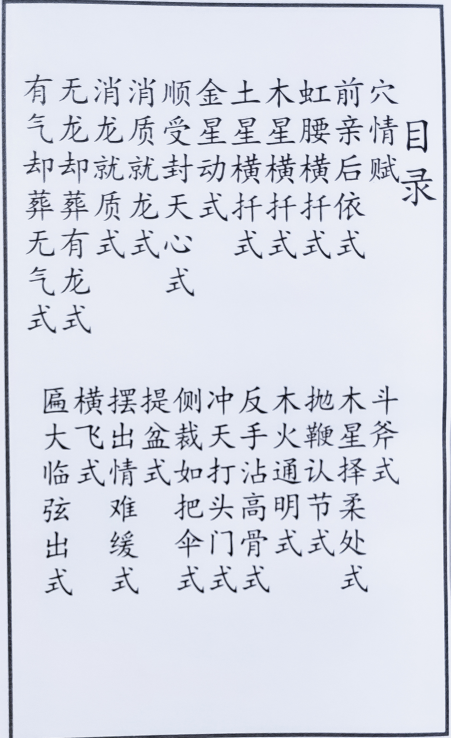 目录
穴情赋
前亲后依式
虹腰横扦式
木星横扦式
土星横扦式
金星动式
顺受封天心式
消质就龙式
消龙就质式
无龙却葬有龙式
有气却葬无气式
斗斧式
木星择柔处式
抛鞭认节式
木火通明式
反手沾高骨式
冲天打头门式
侧裁如把伞式
提盆式
摆出情难缓式
横飞式
匾大临弦出式